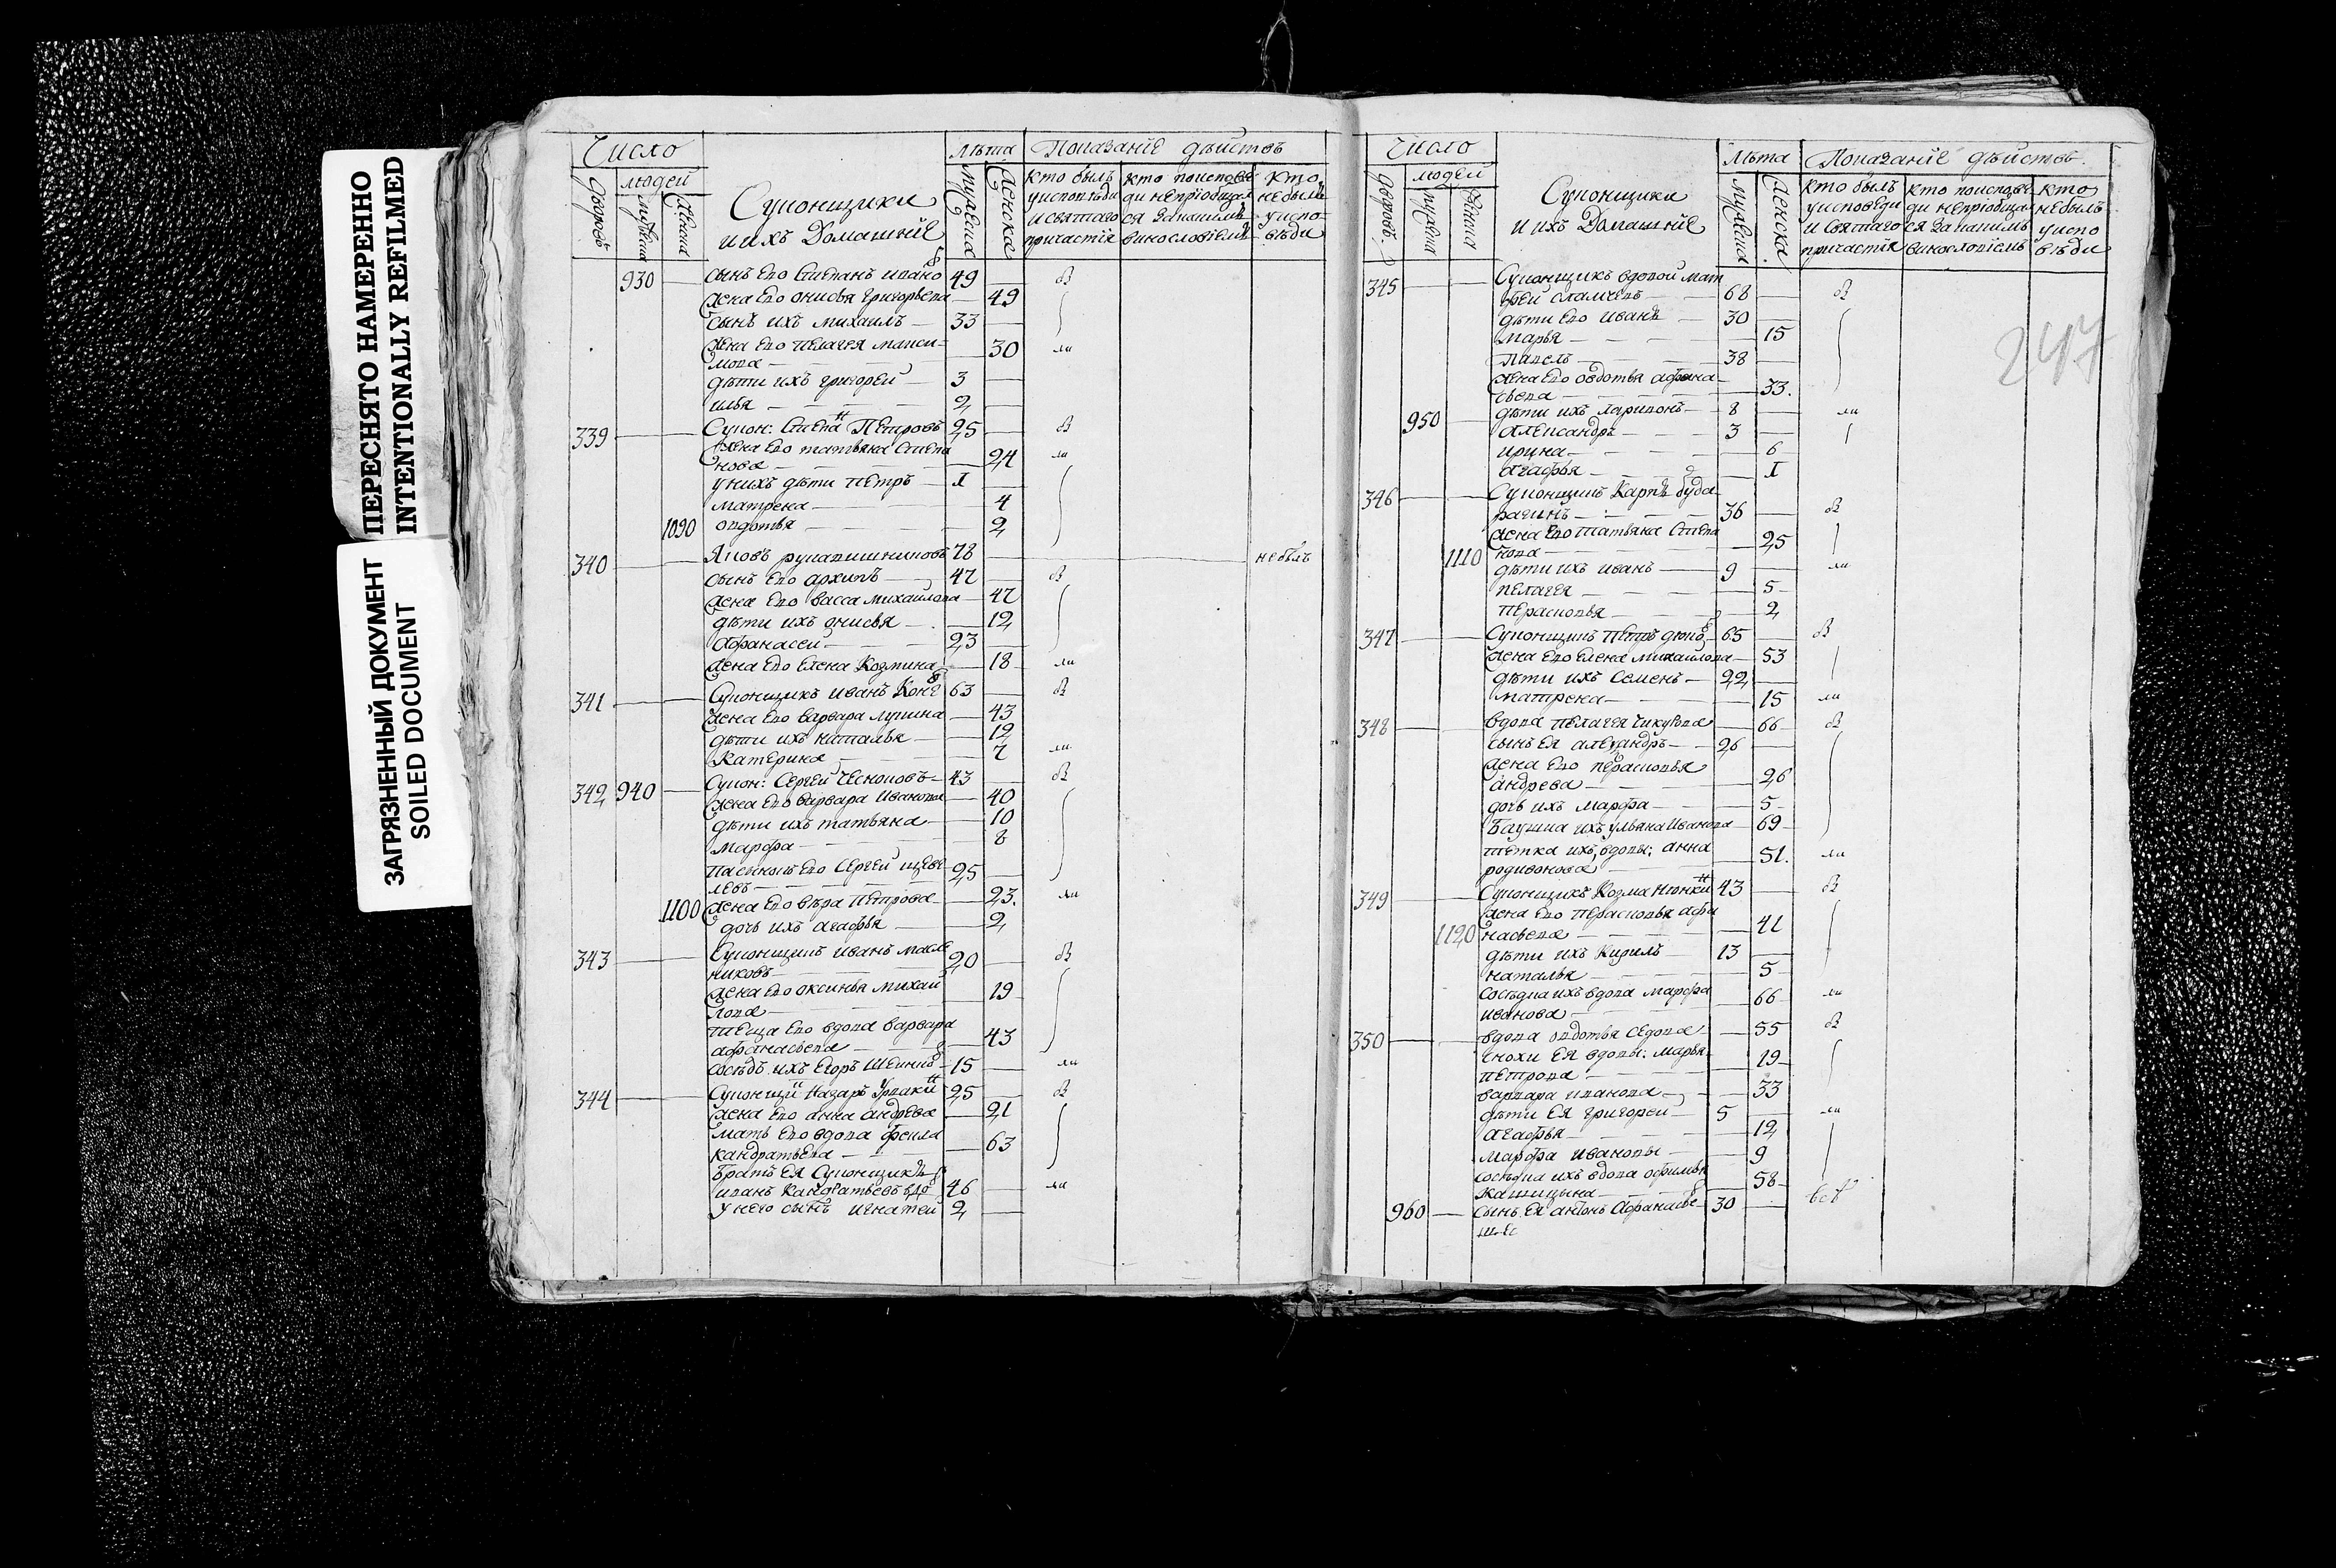 ПЕРЕСНЯТО НАМЕРЕННО
INTENTIONALLY REFILMED
ЗАГРЯЗНЕННЫЙ ДОКУМЕНТ
SOILED DOCUMENT
Число Лѣта Показаніе дѣйствъ
людей
дворовъ мужеска женска
Суконщики
и ихъ Домашніе
мужеска женска
кто былъ у исповѣди и святаго причастія
кто исповѣди не пріобщался за какимъ винословіемъ
кто не былъ у исповѣди
930 сынъ его Степанъ Иванов 49 в
жена его Онисья Григорьева 49
сынъ ихъ Михаилъ 33
жена его Пелагея Макси- 30 ли
мова
дѣти ихъ Григорей 3
Илья 2
339 Сукон: Степан Петровъ 25 в
жена его Татьяна Степа 24 ли
нова
у нихъ дѣти Петръ 1
Матрена 4
1090 Овдотья 2
340 Яковъ Рукавишниковъ 78 не былъ
сынъ его Архипъ 47 в
жена его Васса Михайлова 47
дѣти ихъ Онисья 12
Афанасей 23
жена его Елена Козмина 18 ли
341 Суконщикъ Иванъ 63 в
жена его Варвара Лукина 43
дѣти ихъ Наталья 12
Катерина 7 ли
342 940 Сукон: Сергей Чесноковъ 43 в
жена его Варвара Иванова 40
дѣти ихъ Татьяна 10
Марфа 8
пасынокъ его Сергей Щеве 25
левъ
1100 жена его Вѣра Петрова 23. ли
дочь ихъ Агафья 2
343 Суконщикъ Иванъ Масле 20 в
никовъ
жена его Оксинья Михай 19
лова
теща его вдова Варвара 43
Афанасьева
сосѣдъ ихъ Егоръ 15 ли
344 Суконщи Назаръ 25 в
жена его Анна Андрева 21
мать его вдова Фекла 63
Кандратьева
братъ ея Суконщикъ
Иванъ Кандратьевъ вдо 46 ли
у него сынъ Игнатей 2
Число Лѣта Показаніе дѣйствъ.
людей
дворовъ. мужеска женска
Суконщики
и ихъ Домашніе
мужеска женска.
кто былъ у исповеди и святаго причастія
кто исповеди не пріобщался за какимъ винословіемъ
кто не былъ у исповеди
247
345 Суконщикъ вдовой Мат
фей 68 в
дѣти его Иванъ 30
Марья 15
Павелъ 38
жена его Овдотья Афана 33.
сьева
950 дѣти ихъ Ларивонъ 8 ли
Александръ 3
Ирина 6
Агафья 1
346 Суконщикъ Карпъ Буда
рагинъ 36 в
жена его Татьяна Степа 25
1110 нова
дѣти ихъ Иванъ 9 ли
Пелагея 5
Перасковья 2
347 Суконщикъ Петръ 65 в
жена его Елена Михайлова 53
дѣти ихъ Семенъ 22
Матрена 15 ли
348 вдова Пелагея Чикурова 66 в
сынъ ея Александръ 26
жена его Перасковья
Андрева 26
дочь ихъ Марфа 5
бабушка ихъ Ульяна Иванова 69
тетка ихъ, вдовы: Анна 51. ли
Родивонова
349 Суконщикъ Козма 43 в
жена его Перасковья Афа 41
1120 насьева
дѣти ихъ Кирилъ 13
Наталья 5
сосѣдка ихъ вдова Марфа 66 ли
Иванова
350 вдова Овдотья Седова 55 в
снохи ея вдовы: Марья 19
Петрова
Варвара Иванова 33
дѣти ея Григорей 5 ли
Агафья 12
Марфа Ивановы 9
сосѣдка ихъ вдова Офимья 58
Кашицына
960 сынъ ея Антонъ Афанасье 30